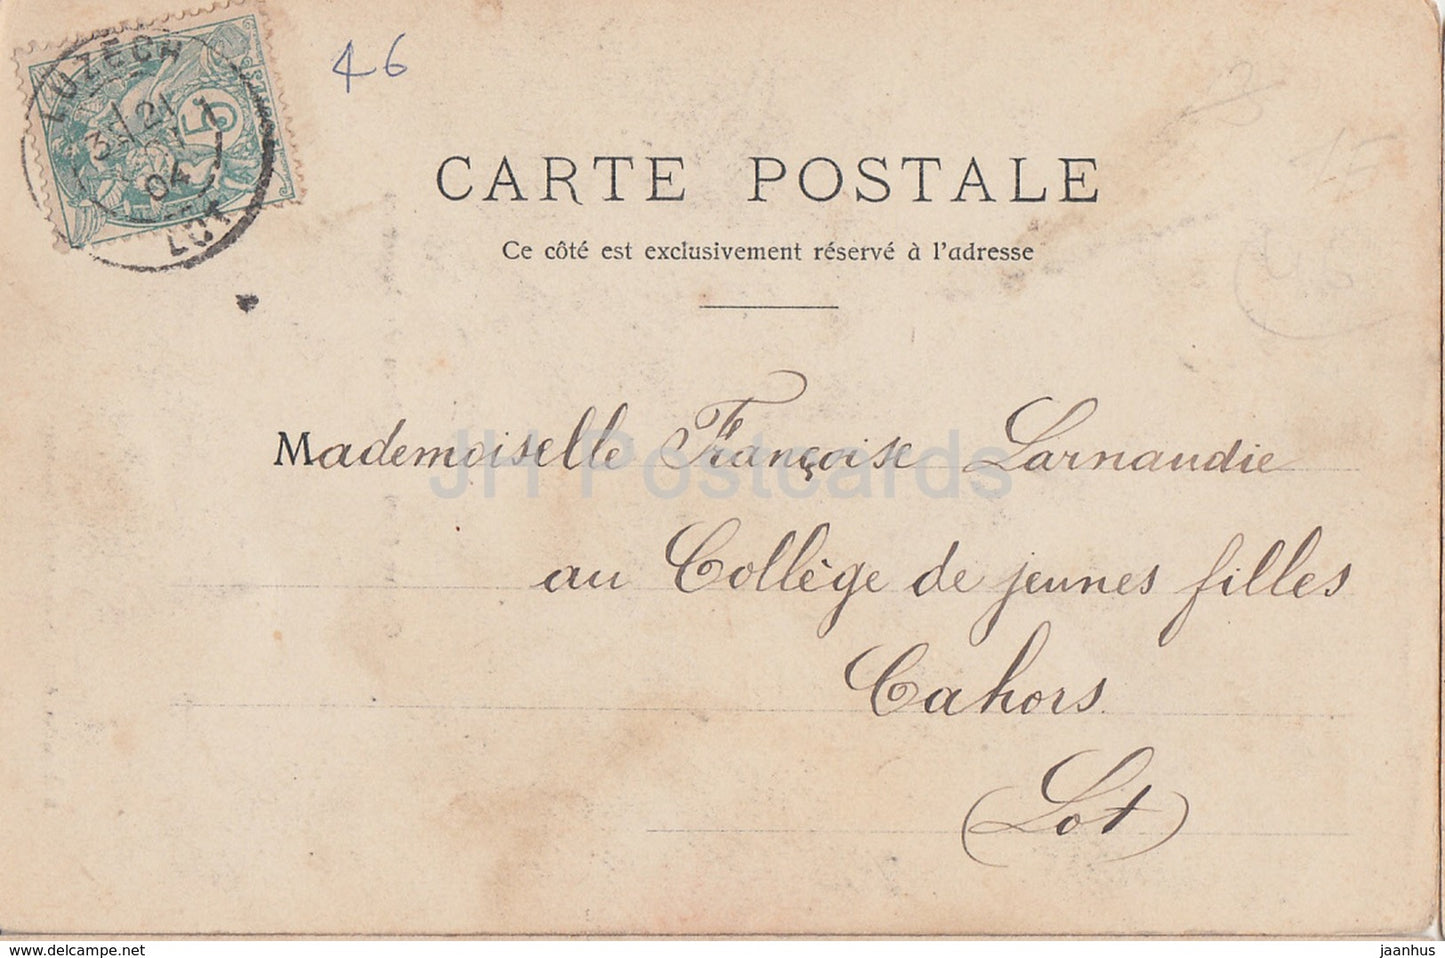 LUZECH
3 21
04
LOT
5
46
CARTE POSTALE
Ce côté est exclusivement réservé à l'adresse
Mademoiselle Françoise Larnaudie
JH Postcards
au Collège de jeunes filles
Cahors
(Lot)
www.delcampe.net
jaanhus